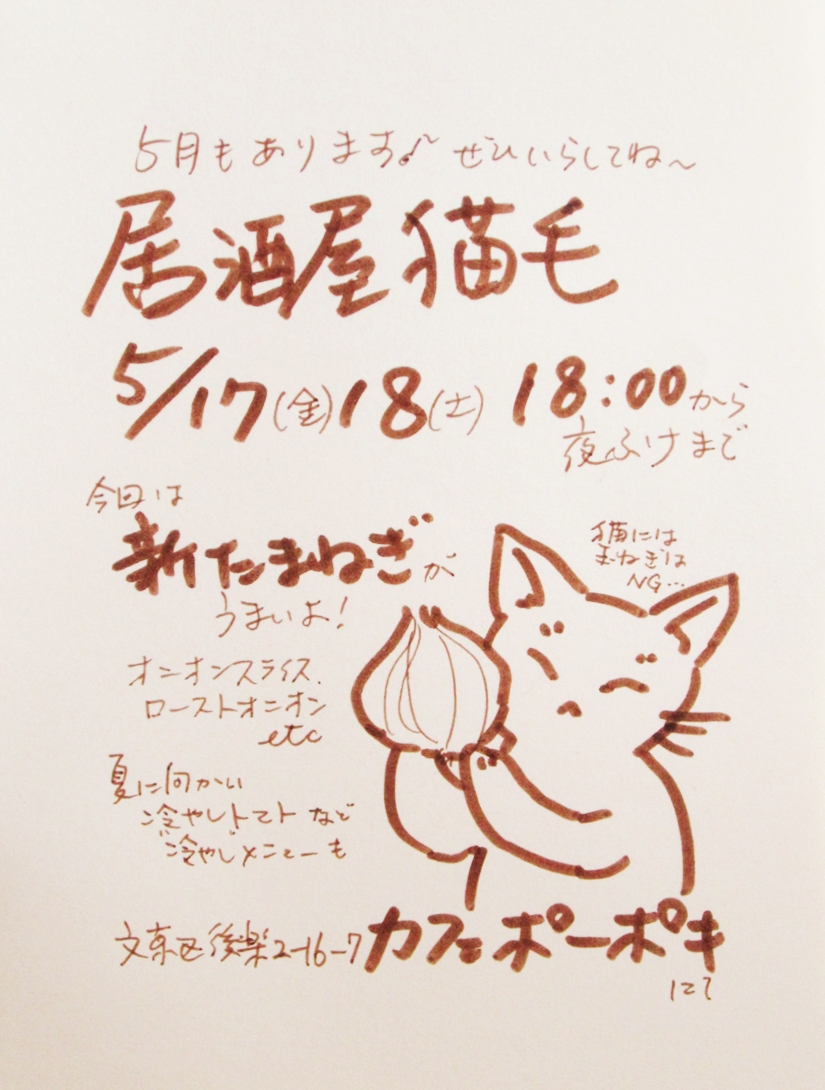 5月もあります♪ ぜひいらしてね〜
居酒屋猫毛
5/17(金)18(土) 18:00から
夜ふけまで
今回は
新たまねぎが
うまいよ!
猫には
玉ねぎは
NG…
オニオンスライス.
ローストオニオン
etc
夏に向かい
冷やしトマトなど
冷やしメニューも
文京区後楽2-16-7 カフェポーポキ
にて